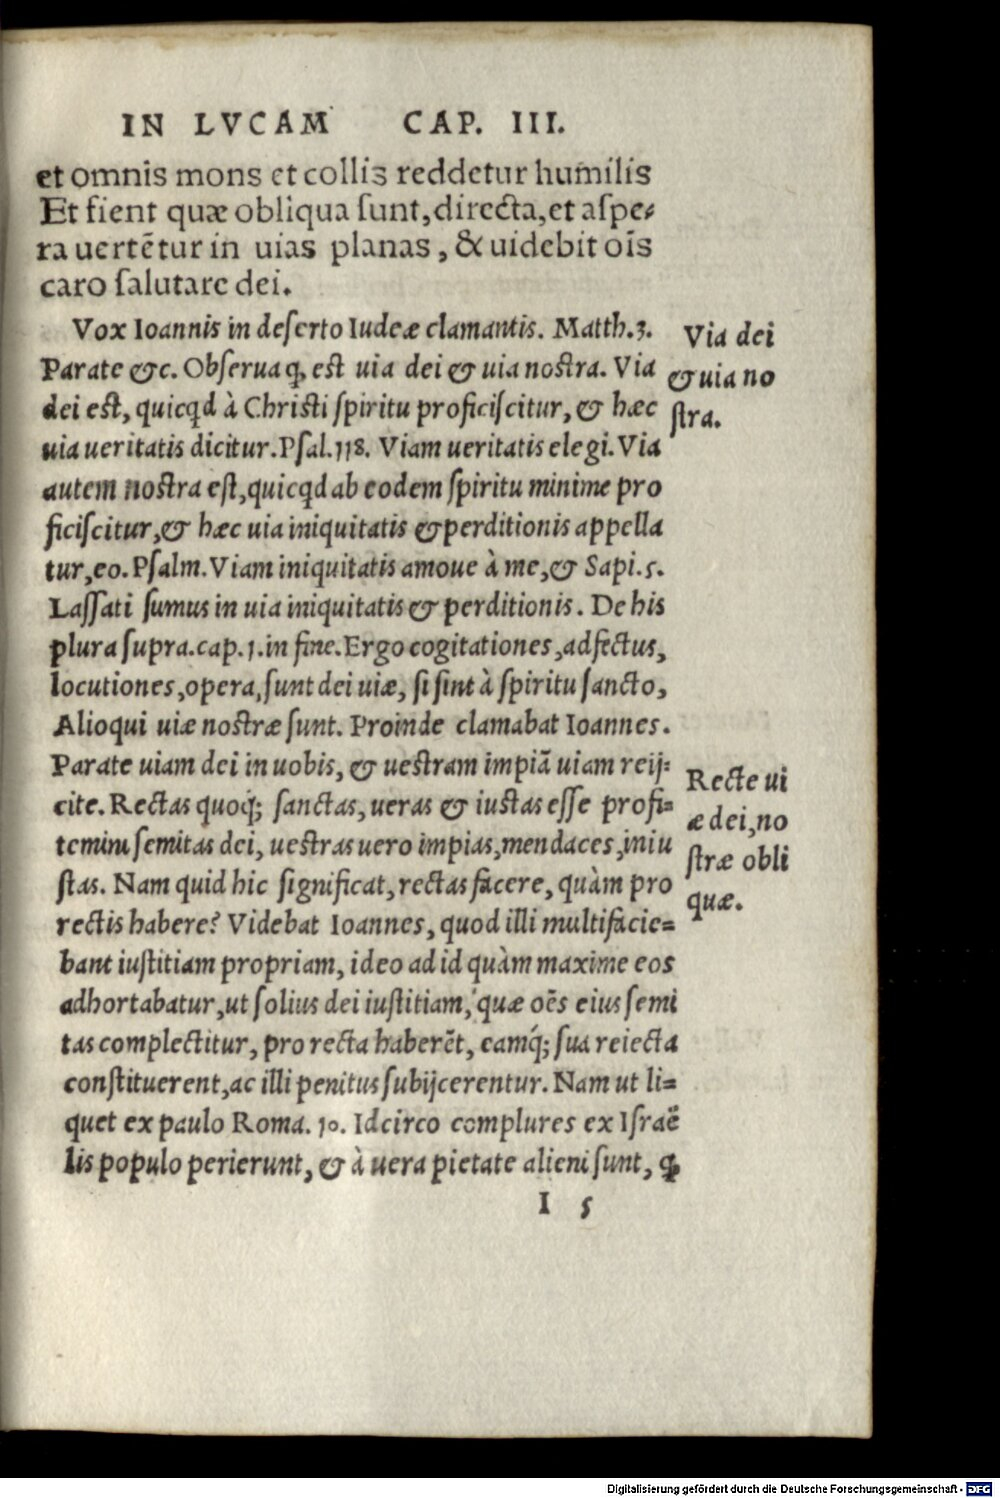 IN LVCAM CAP. III.
et omnis mons et collis reddetur humilis
Et fient quæ obliqua ſunt, directa, et aſpe⸗
ra uertẽtur in uias planas, & uidebit oĩs
caro ſalutare dei.
Vox Ioannis in deſerto Iudeæ clamantis. Matth.3.
Parate &c. Obſerua ꝙ est uia dei & uia nostra. Via
dei est, quicqd à Christi ſpiritu proficiſcitur, & hæc
uia ueritatis dicitur. Pſal.118. Viam ueritatis elegi. Via
autem nostra eſt, quicqd ab eodem ſpiritu minime pro
ficiſcitur, & hæc uia iniquitatis & perditionis appella
tur, eo. Pſalm. Viam iniquitatis amoue à me, & Sapi.5.
Laſſati ſumus in uia iniquitatis & perditionis. De his
plura ſupra. cap.1. in fine. Ergo cogitationes, adfectus,
locutiones, opera, ſunt dei uiæ, ſi ſint à ſpiritu ſancto,
Alioqui uiæ nostræ ſunt. Proinde clamabat Ioannes.
Parate uiam dei in uobis, & uestram impiã uiam reij⸗
cite. Rectas quoq́; ſanctas, ueras & iustas eſſe profi⸗
temini ſemitas dei, uestras uero impias, mendaces, iniu
ſtas. Nam quid hic ſignificat, rectas facere, quàm pro
rectis habere? Videbat Ioannes, quod illi multifacie⸗
bant iuſtitiam propriam, ideo ad id quàm maxime eos
adhortabatur, ut ſolius dei iuſtitiam, quæ oẽs eius ſemi
tas complectitur, pro recta haberẽt, eamq́; ſua reiecta
conſtituerent, ac illi penitus ſubijcerentur. Nam ut li⸗
quet ex paulo Roma. 10. Idcirco complures ex Iſraë
lis populo perierunt, & à uera pietate alieni ſunt, ꝙ
I 5
Via dei
& uia no
ſtra.
Recte ui
æ dei, no
ſtræ obli
quæ.
Digitalisierung gefördert durch die Deutsche Forschungsgemeinschaft - DFG